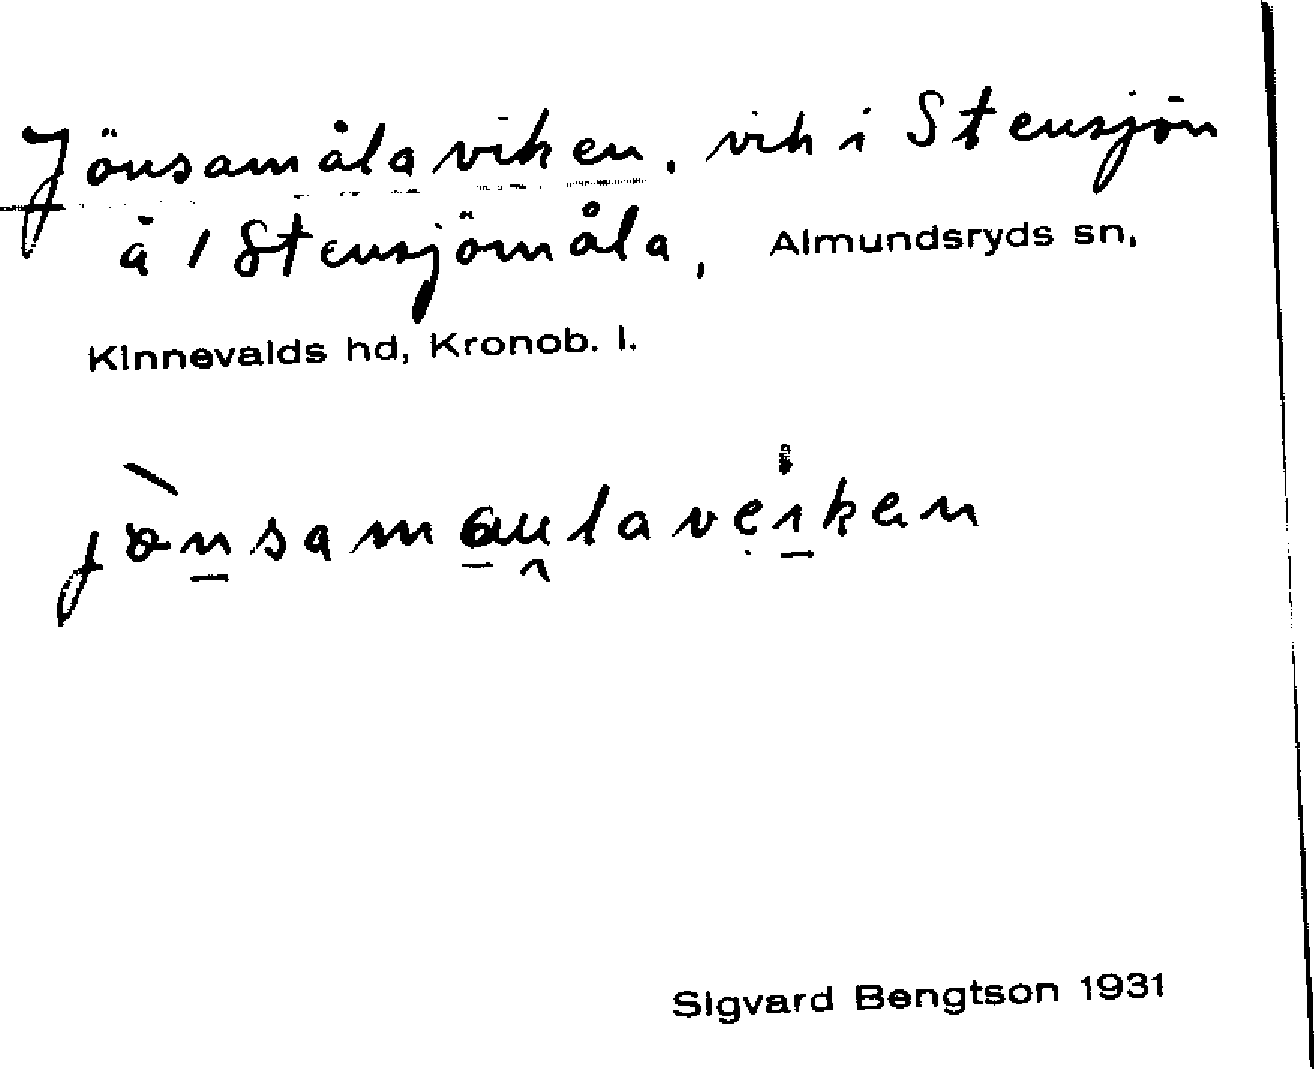 Jönsamålaviken, vik i Stensjön
å 1 Stensjömåla, Almundsryds sn,
Kinnevalds hd, Kronob. l.
jònsamaulaveiken
Sigvard Bengtson 1931